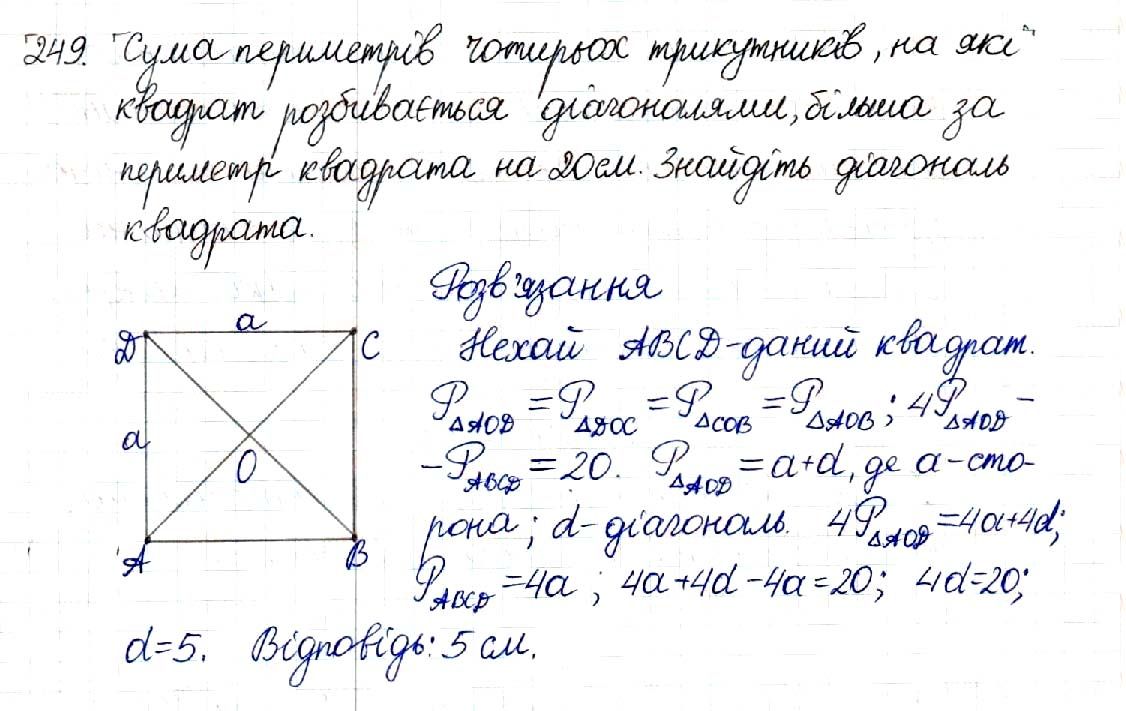 249. Сума периметрів чотирьох трикутників, на які
квадрат розбивається діагоналями, більша за
периметр квадрата на 20см. Знайдіть діагональ
квадрата.
Розв'язання
a
D
C
Нехай ABCD-даний квадрат.
P△AOD = P△DOC = P△COB = P△AOB ; 4P△AOD -
a
O
-PABCD = 20. P△AOD = a+d, де a-сто-
рона; d-діагональ. 4P△AOD =4a+4d;
A
B
PABCD =4a ; 4a+4d-4a=20; 4d=20;
d=5. Відповідь: 5 см.